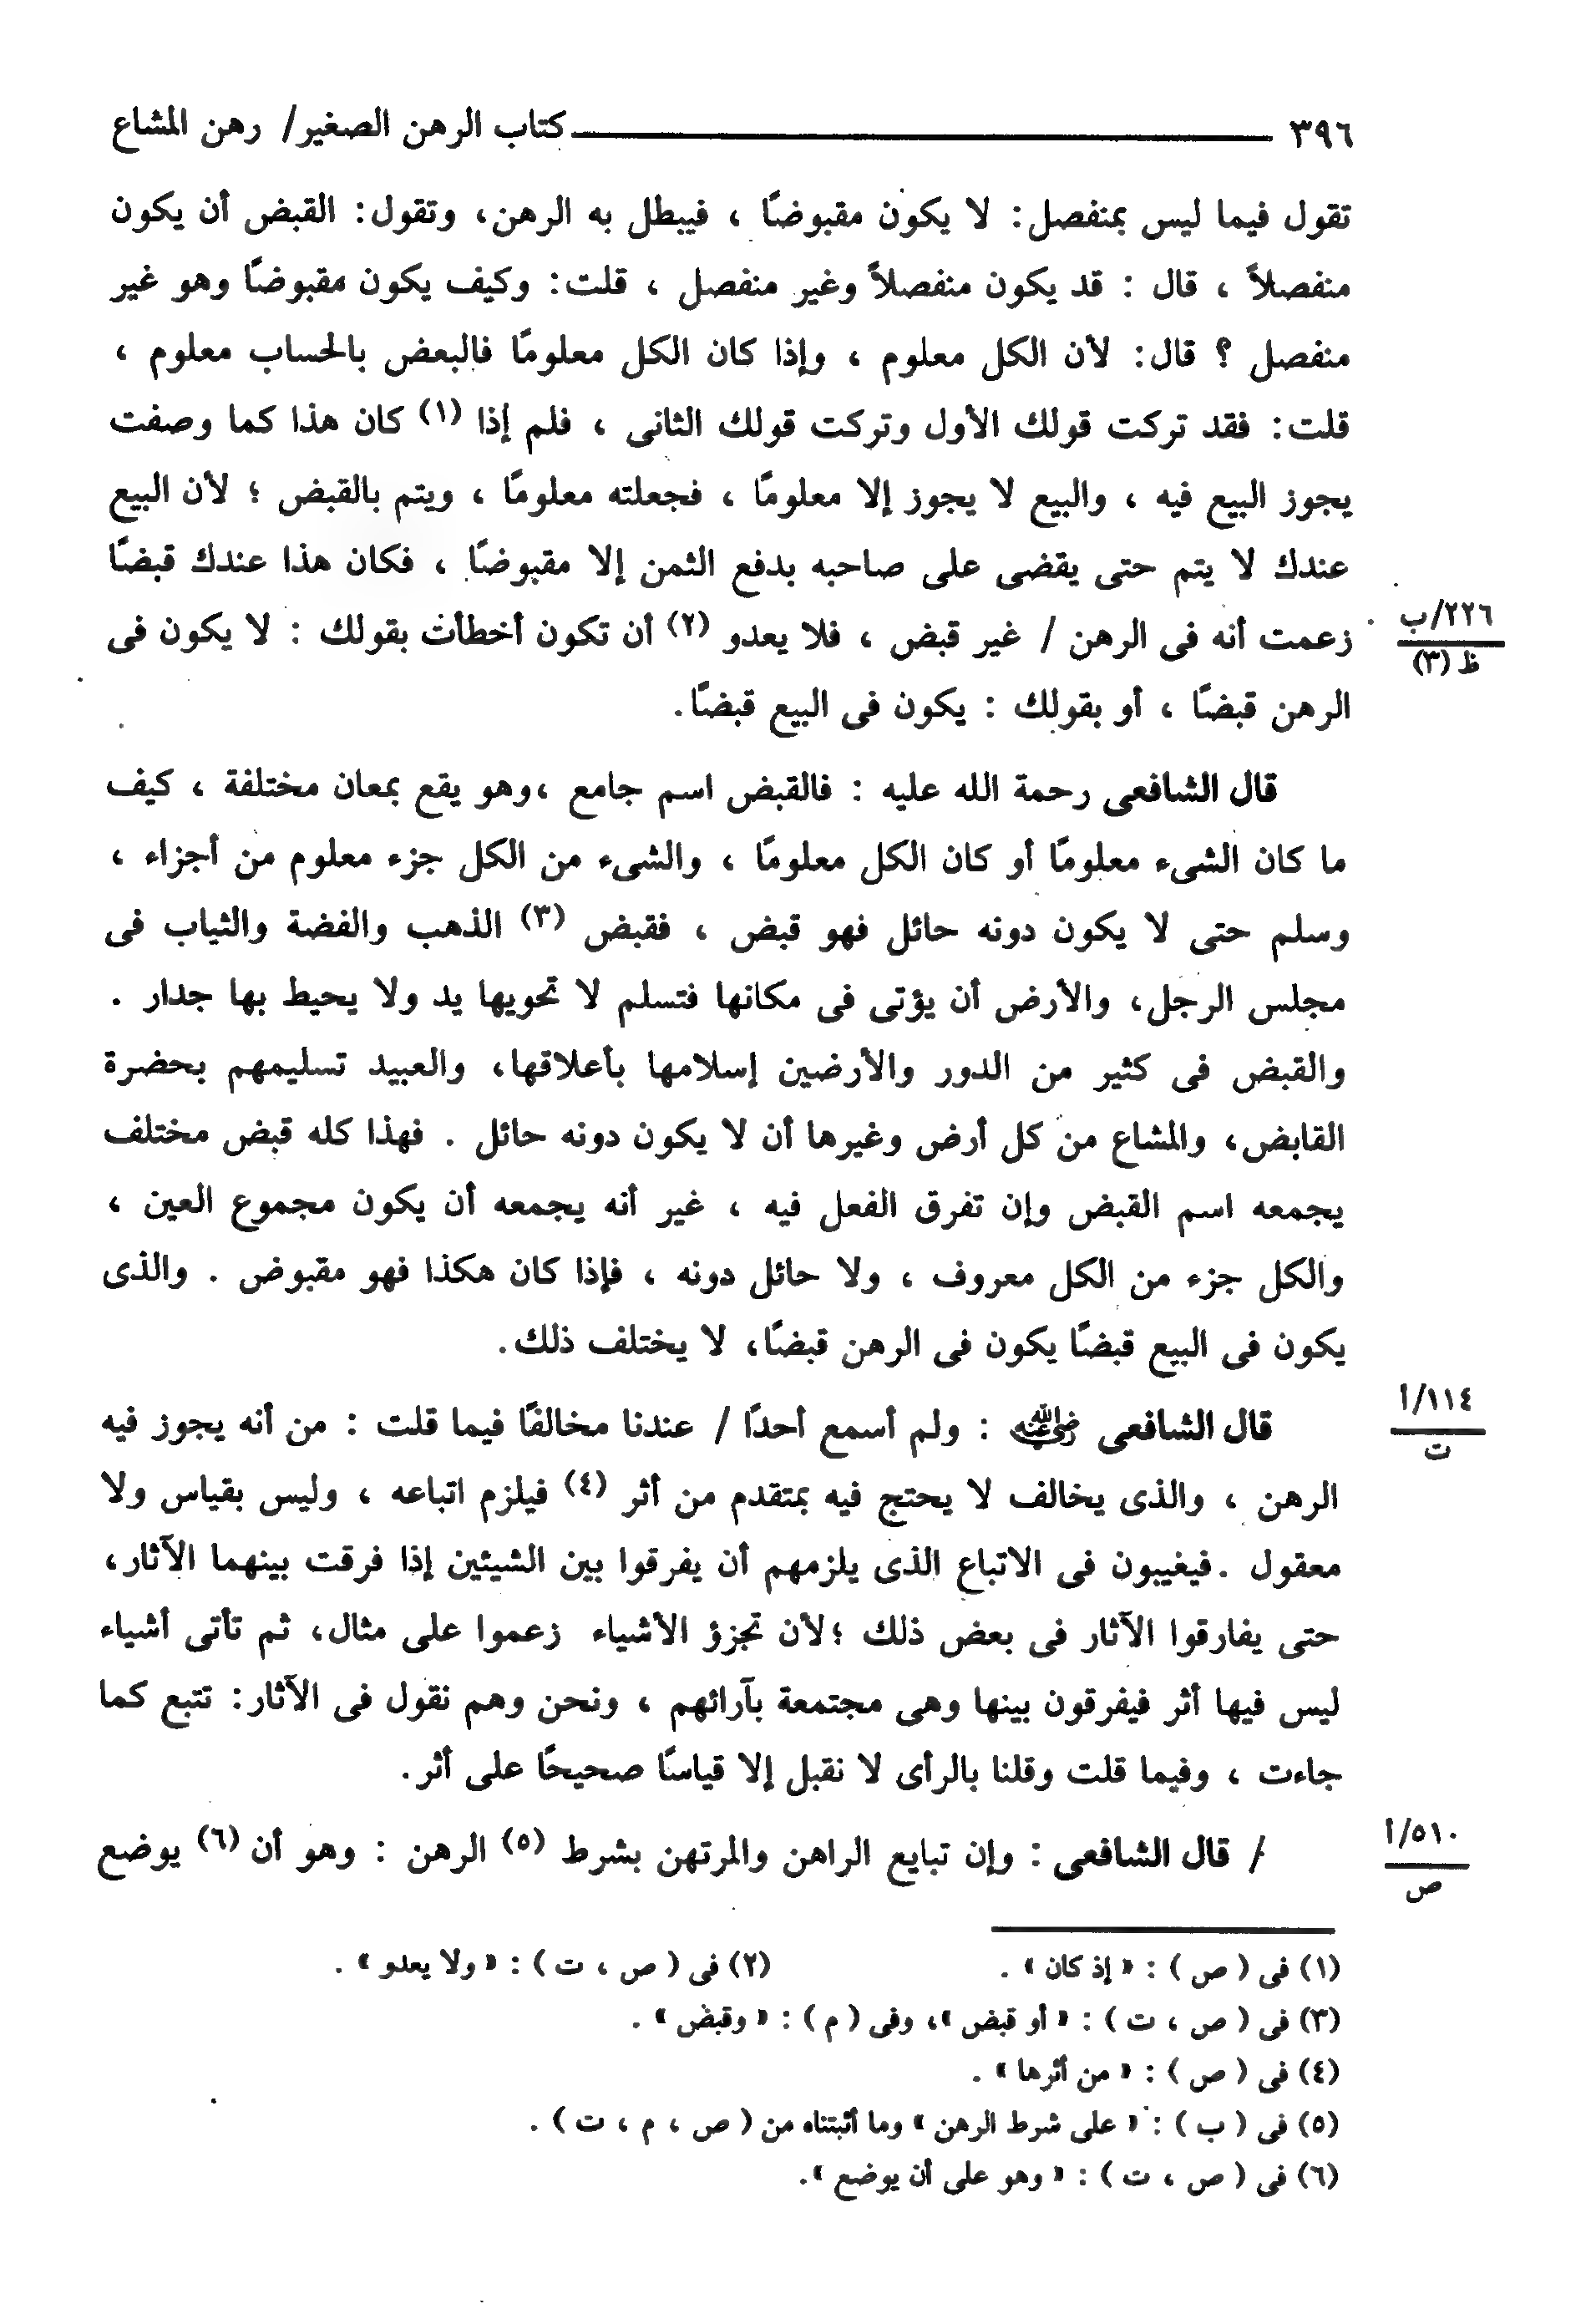 ٣٩٦ كتاب الرهن الصغير/ رهن المشاع
تقول فيما ليس بمنفصل: لا يكون مقبوضًا ، فيبطل به الرهن، وتقول: القبض أن يكون
منفصلاً ، قال : قد يكون منفصلاً وغير منفصل ، قلت: وكيف يكون مقبوضًا وهو غير
منفصل ؟ قال: لأن الكل معلوم ، وإذا كان الكل معلومًا فالبعض بالحساب معلوم ،
قلت: فقد تركت قولك الأول وتركت قولك الثانى ، فلم إذا (١) كان هذا كما وصفت
يجوز البيع فيه ، والبيع لا يجوز إلا معلومًا ، فجعلته معلومًا ، ويتم بالقبض ؛ لأن البيع
عندك لا يتم حتى يقضى على صاحبه بدفع الثمن إلا مقبوضًا ، فكان هذا عندك قبضًا
زعمت أنه فى الرهن / غير قبض ، فلا يعدو (٢) أن تكون أخطأت بقولك : لا يكون فى
٢٢٦/ب
ظ (٣)
الرهن قبضًا ، أو بقولك : يكون فى البيع قبضًا.
قال الشافعى رحمة الله عليه : فالقبض اسم جامع ،وهو يقع بمعان مختلفة ، كيف
ما كان الشىء معلومًا أو كان الكل معلومًا ، والشىء من الكل جزء معلوم من أجزاء ،
وسلم حتى لا يكون دونه حائل فهو قبض ، فقبض (٣) الذهب والفضة والثياب فى
مجلس الرجل، والأرض أن يؤتى فى مكانها فتسلم لا تحويها يد ولا يحيط بها جدار .
والقبض فى كثير من الدور والأرضين إسلامها بأعلاقها، والعبيد تسليمهم بحضرة
القابض، والمشاع من كل أرض وغيرها أن لا يكون دونه حائل . فهذا كله قبض مختلف
يجمعه اسم القبض وإن تفرق الفعل فيه ، غير أنه يجمعه أن يكون مجموع العين ،
والكل جزء من الكل معروف ، ولا حائل دونه ، فإذا كان هكذا فهو مقبوض . والذى
يكون فى البيع قبضًا يكون فى الرهن قبضًا، لا يختلف ذلك.
قال الشافعى رضي الله عنه : ولم أسمع أحدًا / عندنا مخالفًا فيما قلت : من أنه يجوز فيه
١١٤/أ
ت
الرهن ، والذى يخالف لا يحتج فيه بمتقدم من أثر (٤) فيلزم اتباعه ، وليس بقياس ولا
معقول .فيغيبون فى الاتباع الذى يلزمهم أن يفرقوا بين الشيئين إذا فرقت بينهما الآثار،
حتى يفارقوا الآثار فى بعض ذلك ؛لأن تجزؤ الأشياء زعموا على مثال، ثم تأتى أشياء
ليس فيها أثر فيفرقون بينها وهى مجتمعة بآرائهم ، ونحن وهم نقول فى الآثار: تتبع كما
جاءت ، وفيما قلت وقلنا بالرأى لا نقبل إلا قياسًا صحيحًا على أثر.
/ قال الشافعى : وإن تبايع الراهن والمرتهن بشرط (٥) الرهن : وهو أن (٦) يوضع
٥١٠/أ
ص
(١) فى ( ص ) : « إذ كان » . (٢) فى ( ص ، ت ) : « ولا يعدو » .
(٣) فى ( ص ، ت ) : « أو قبض »، وفى ( م ) : « وقبض » .
(٤) فى ( ص ) : « من أثرها » .
(٥) فى ( ب ) : « على شرط الرهن » وما أثبتناه من ( ص ، م ، ت ) .
(٦) فى ( ص ، ت ) : « وهو على أن يوضع ».